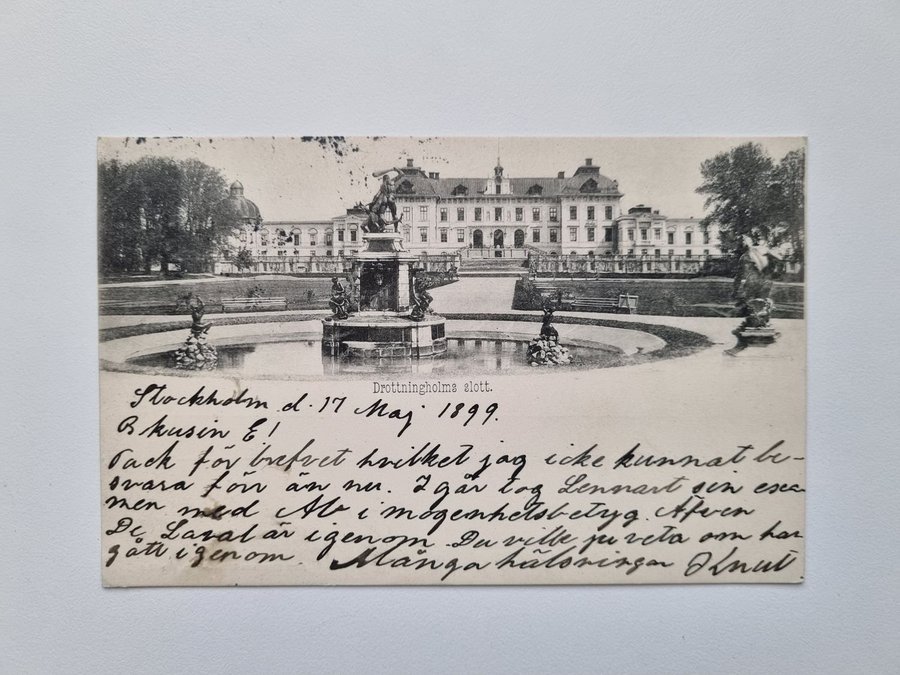 Drottningholms slott.
Stockholm d. 17 Maj 1899.
B kusin E!
Tack för brefvet hvilket jag icke kunnat be-
svara förr än nu. I går tog Lennart sin exa-
men med Ab i mogenhetsbetyg. Äfven
De Laval är igenom. Du ville ju veta om han
gått igenom. Många hälsningar Knut